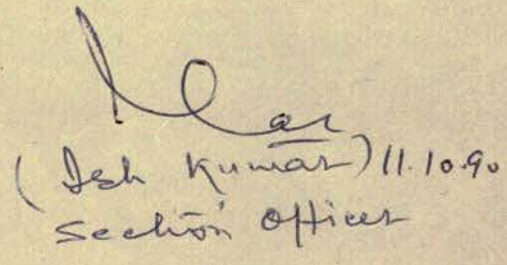 (Ish Kumar) 11.10.90
Section Officer